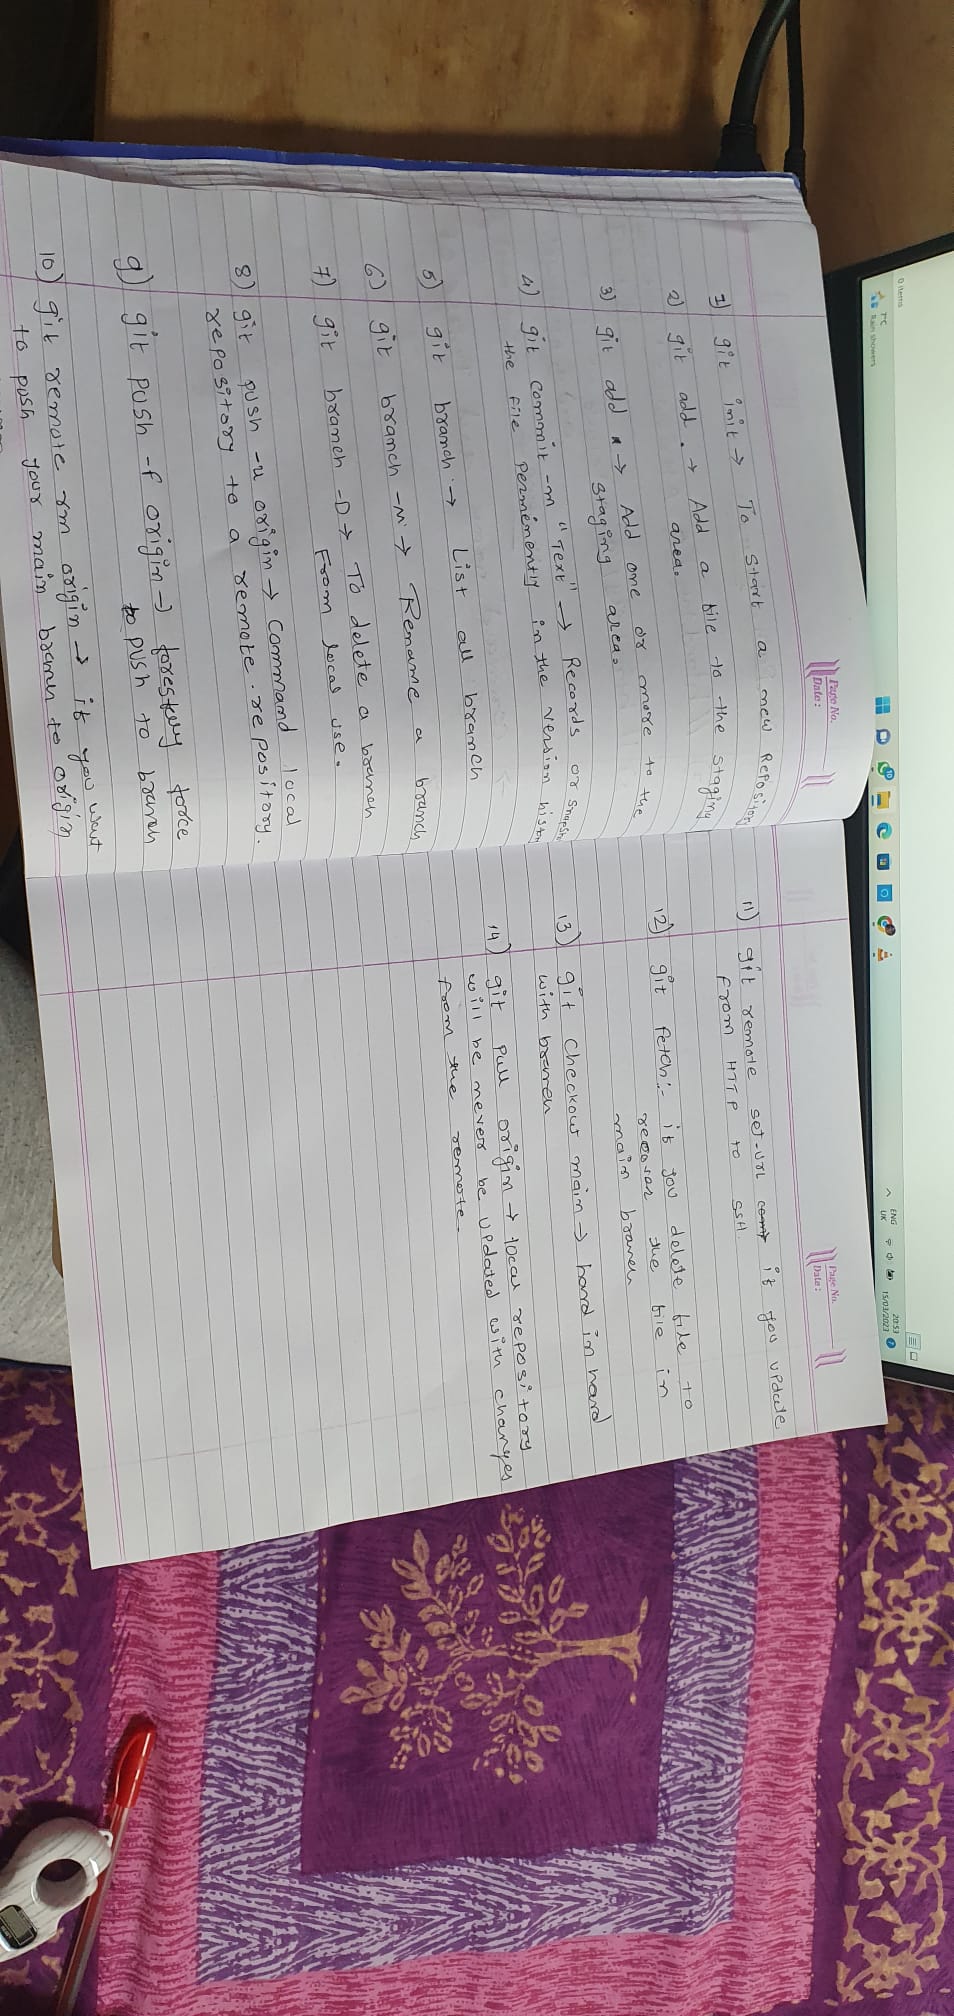 Page No.
Date:
1) git init → To start a new Repository
2) git add . → Add a file to the staging
area.
3) git add → Add one or more to the
staging area.
4) git commit -m "Text" → Records or snapsho
the file perminently in the version histor
5) git branch → List all branch
6) git branch -M → Rename a branch
7) git branch -D → To delete a branch
From local use.
8) git push -u origin → command local
repository to a remote repository.
9) git push -f origin → force
to push to branch
10) git remote rm origin → if you want
to push your main branch to origin
Page No.
Date:
11) git remote set-url if you update
from HTTP to SSH.
12) git fetch :- if you delete file to
the file in
main branch
13) git checkout main → hard in hard
with branch
14) git pull origin → local repository
will be never be updated with changes
from the remote.
0 items
7°C
Rain showers
ENG
UK
20:53
15/03/2023